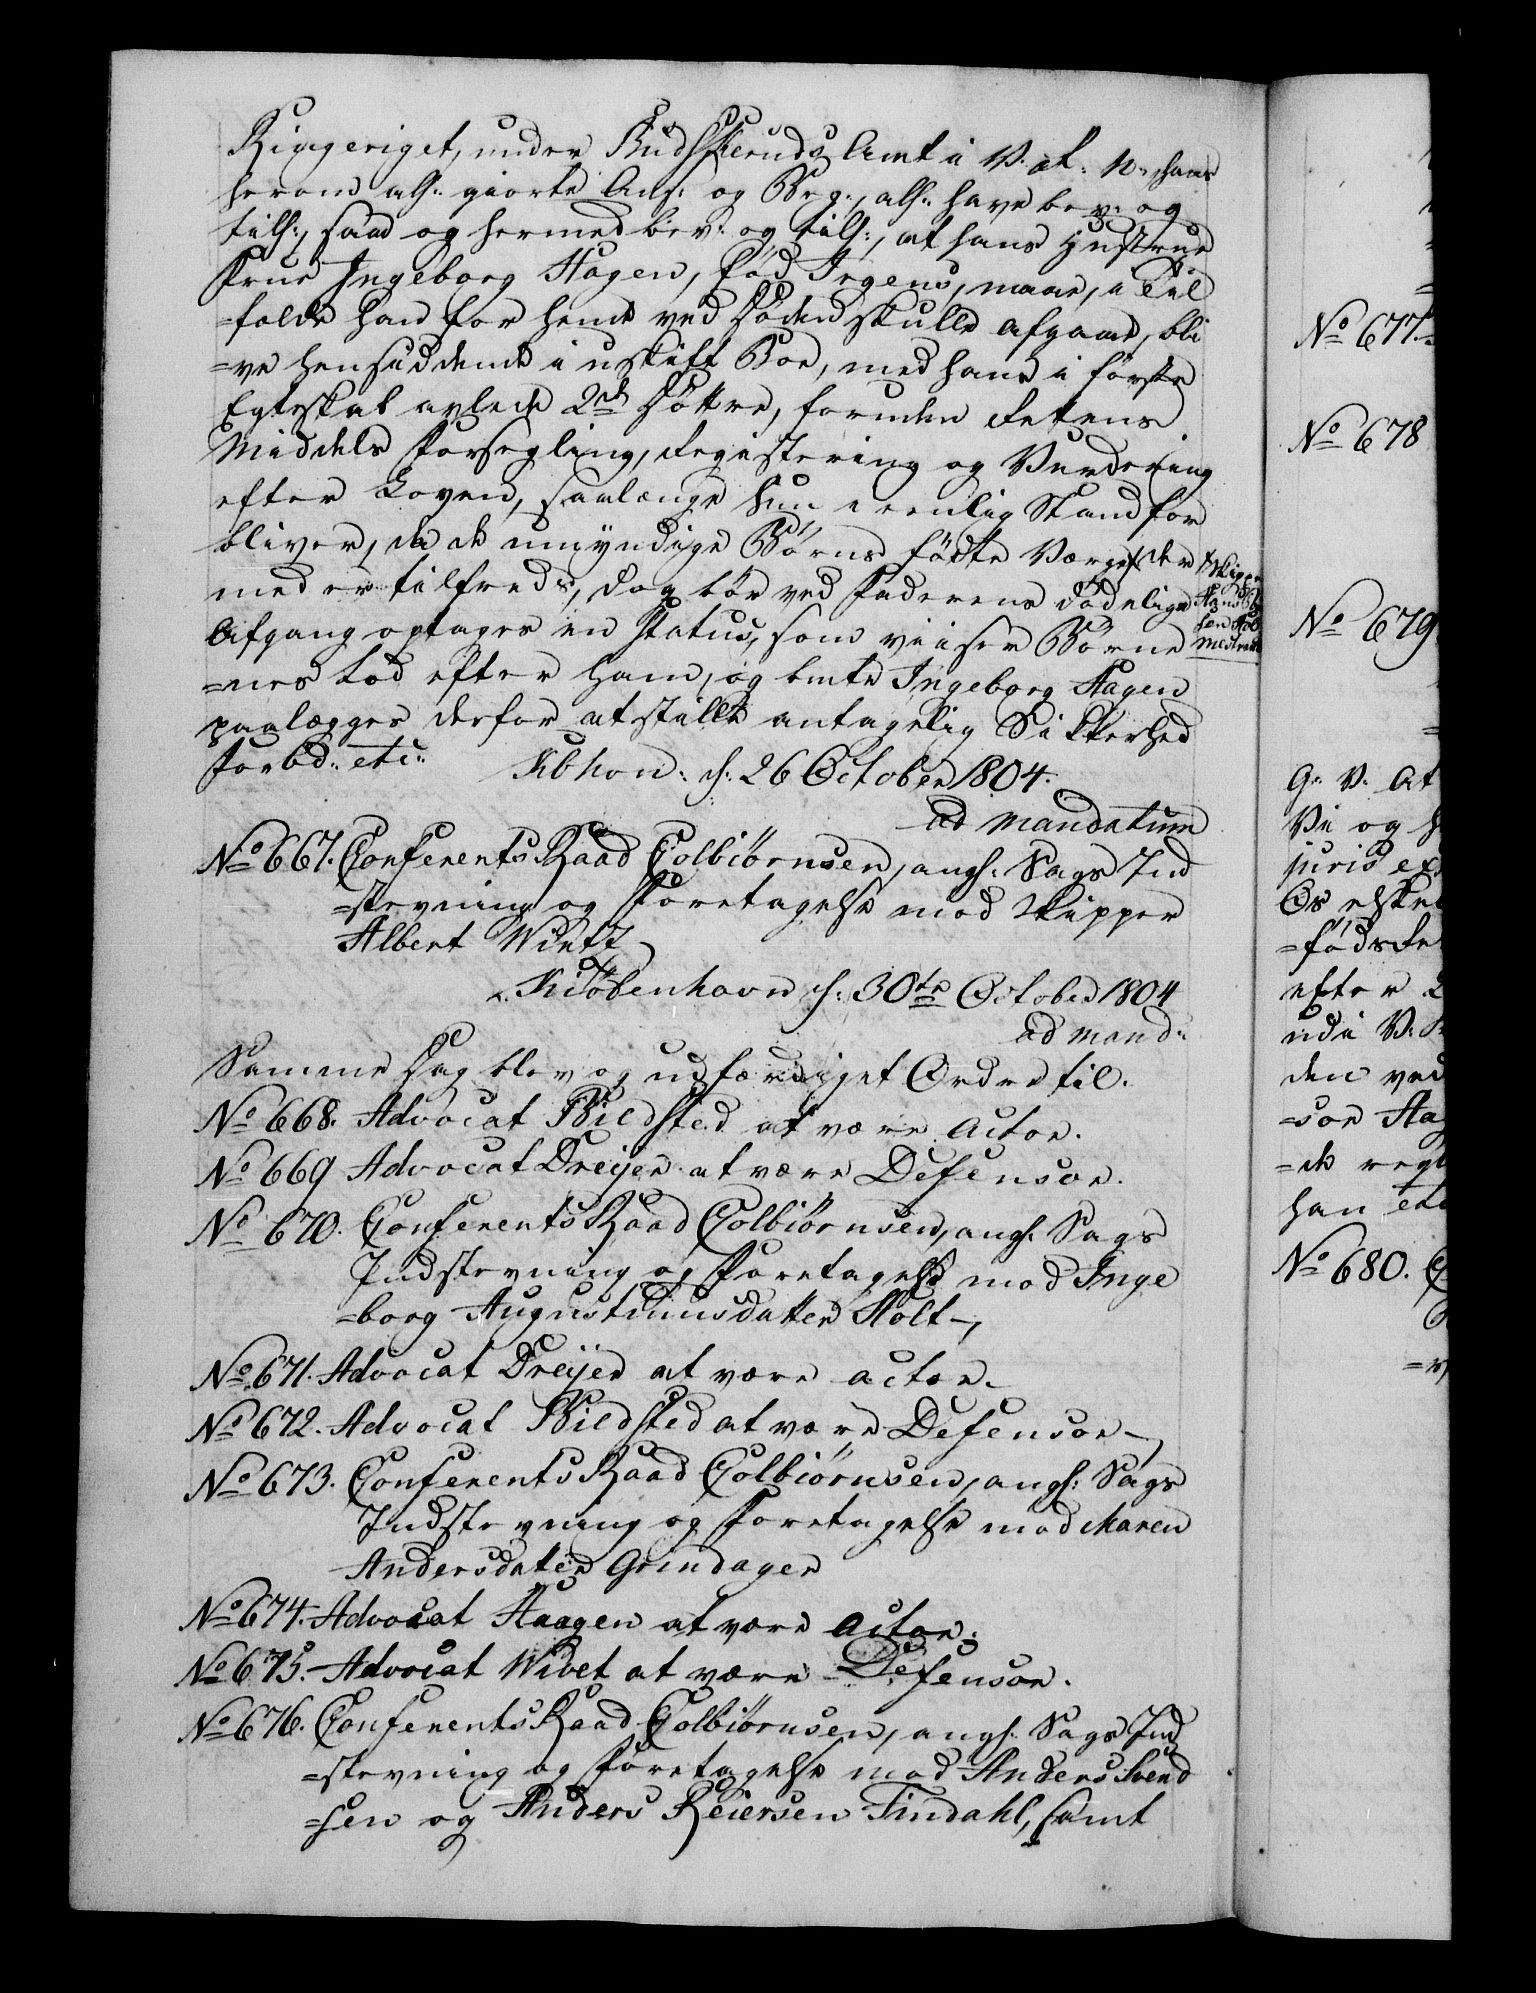 Ringeriget, under Budskeruds Amt i V. R. N., hans
herom all: giorte Ans: og Beg:, all: have bev: og
till:, saa og hermed bev: og till:, at hans Hustrue
Frue Ingeborg Hagen, fød Irgens, maae, i Til
=fælde han for hende ved Døden skulle afgaae, bli
=ve hensiddende i uskift Boe, med hans i første
Egteskab avlede 2de Døttre, foruden Fetens
Middels Forsegling, Registering og Vurdering
efter Loven, saalænge hun i eenlig Stand for
bliver, da de umyndige Børns fødte Værge der
med er tilfreds, dog bør ved Faderens dødelige
Afgang optages en Status, som viiser Børne
=nes Lod efter ham, og bmte Ingeborg Hagen
paalægges derfor at stille antagelig Sikkerhed
Forbd: etc: Kbhvn: d: 26 October 1804.
ad mandatum
No 667. Conferents Raad Colbiørnsen, angl: Sags Ind
=stevning og Foretagelse mod Skipper
Albert Wirtz
Kiøbenhavn d: 30te October 1804
ad mand:
Samme Dag blev og udfærdiget Ordre til.
No 668. Advocat Bildsted at være Actor.
No 669 Advocat Dreijer at være Defensor.
No 670. Conferents Raad Colbiørnsen, angl: Sags
Indstevning og Foretagelse mod Inge
=borg Augustinusdatter Holt
No 671. Advocat Dreijer at være actor.
No 672. Advocat Bildsted at være Defensor
No 673. Conferents Raad Colbiørnsen, angl: Sags
Indstevning og Foretagelse mod Maren
Andersdater Grindager
No 674. Advocat Haagen at være Actor.
No 675. Advocat Wibet at være Defensor.
No 676. Conferents Raad Colbiørnsen, angl: Sags Ind
=stevning og Foretagelse mod Anders Svend
=sen og Anders Reiersen Tindahl, samt
No 677.
No 678
No 679
G: V: At
Vi og
juris
Os elske
=føds
efter
udi V:
den ved
=sor
=de
han
No 680.